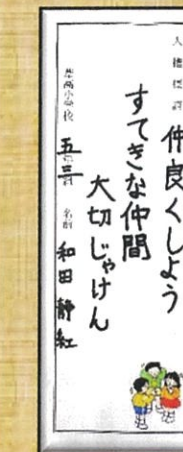 人権標語
仲良くしよう
すてきな仲間
大切じゃけん
小学校 五年三組 名前 和田 静紅